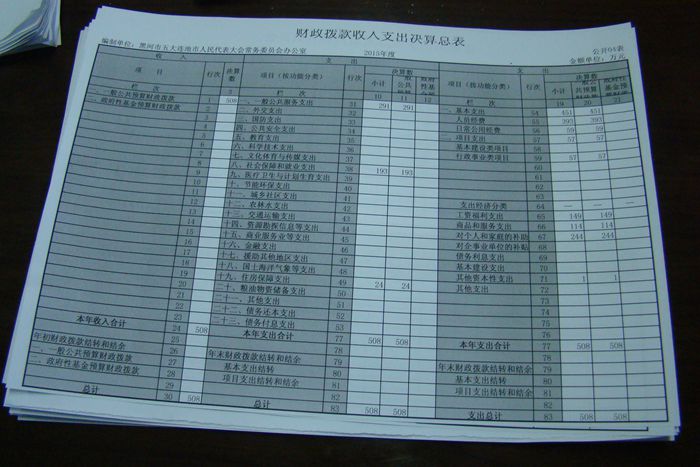 财政拨款收入支出决算总表
公开04表
编制单位：黑河市五大连池市人民代表大会常务委员会办公室 2015年度 金额单位：万元
收 入 支 出 支 出
项 目 行次 决算数 项目（按功能分类） 行次 决算数 项目（按功能分类） 行次 决算数
小计 小计
栏 次 栏 次 10 11 12 栏 次 19 20 21
一、一般公共预算财政拨款 1 508 一、一般公共服务支出 31 291 291 一、基本支出 54 451 451
二、政府性基金预算财政拨款 2 二、外交支出 32 人员经费 55 393 393
3 三、国防支出 33 日常公用经费 56 59 59
4 四、公共安全支出 34 二、项目支出 57 57 57
5 五、教育支出 35 基本建设类项目 58
6 六、科学技术支出 36 行政事业类项目 59 57 57
7 七、文化体育与传媒支出 37 60
8 八、社会保障和就业支出 38 193 193 61
9 九、医疗卫生与计划生育支出 39 62
10 十、节能环保支出 40 63
11 十一、城乡社区支出 41 支出经济分类 64 — —
12 十二、农林水支出 42 工资福利支出 65 149 149
13 十三、交通运输支出 43 商品和服务支出 66 114 114
14 十四、资源勘探信息等支出 44 对个人和家庭的补助 67 244 244
15 十五、商业服务业等支出 45 对企事业单位的补贴 68
16 十六、金融支出 46 债务利息支出 69
17 十七、援助其他地区支出 47 基本建设支出 70
18 十八、国土海洋气象等支出 48 其他资本性支出 71 1 1
19 十九、住房保障支出 49 24 24 其他支出 72
20 二十、粮油物资储备支出 50 73
21 二十一、其他支出 51 74
22 二十二、债务还本支出 52 75
23 二十三、债务付息支出 53 76
本年收入合计 24 508 本年支出合计 77 508 508 本年支出合计 77 508 508
年初财政拨款结转和结余 25 78 78
一、一般公共预算财政拨款 26 年末财政拨款结转和结余 79 年末财政拨款结转和结余 79
二、政府性基金预算财政拨款 27 基本支出结转 80 基本支出结转 80
28 项目支出结转和结余 81 项目支出结转和结余 81
29 82 82
总计 30 508 总计 83 508 508 支出总计 83 508 508